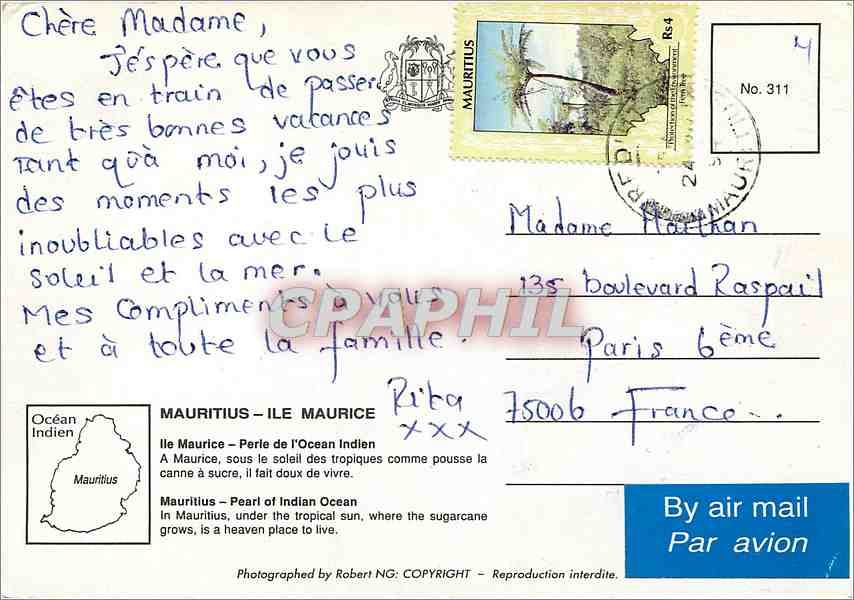 Chère Madame,
J'éspère que vous
êtes en train de passer
de très bonnes vacances
Tant qu'à moi, je jouis
des moments les plus
inoubliables avec le
soleil et la mer.
Mes Compliments à vous
et à toute la famille.
Rita
xxx
MAURITIUS
Rs4
Protection of the Environment
Fern Tree
24
MAURI
No. 311
4
Madame
135 boulevard Raspail
Paris 6ème
75006 France...
CPAPHIL
Océan
Indien
Mauritius
MAURITIUS – ILE MAURICE
Ile Maurice – Perle de l'Ocean Indien
A Maurice, sous le soleil des tropiques comme pousse la
canne à sucre, il fait doux de vivre.
Mauritius – Pearl of Indian Ocean
In Mauritius, under the tropical sun, where the sugarcane
grows, is a heaven place to live.
By air mail
Par avion
Photographed by Robert NG: COPYRIGHT – Reproduction interdite.